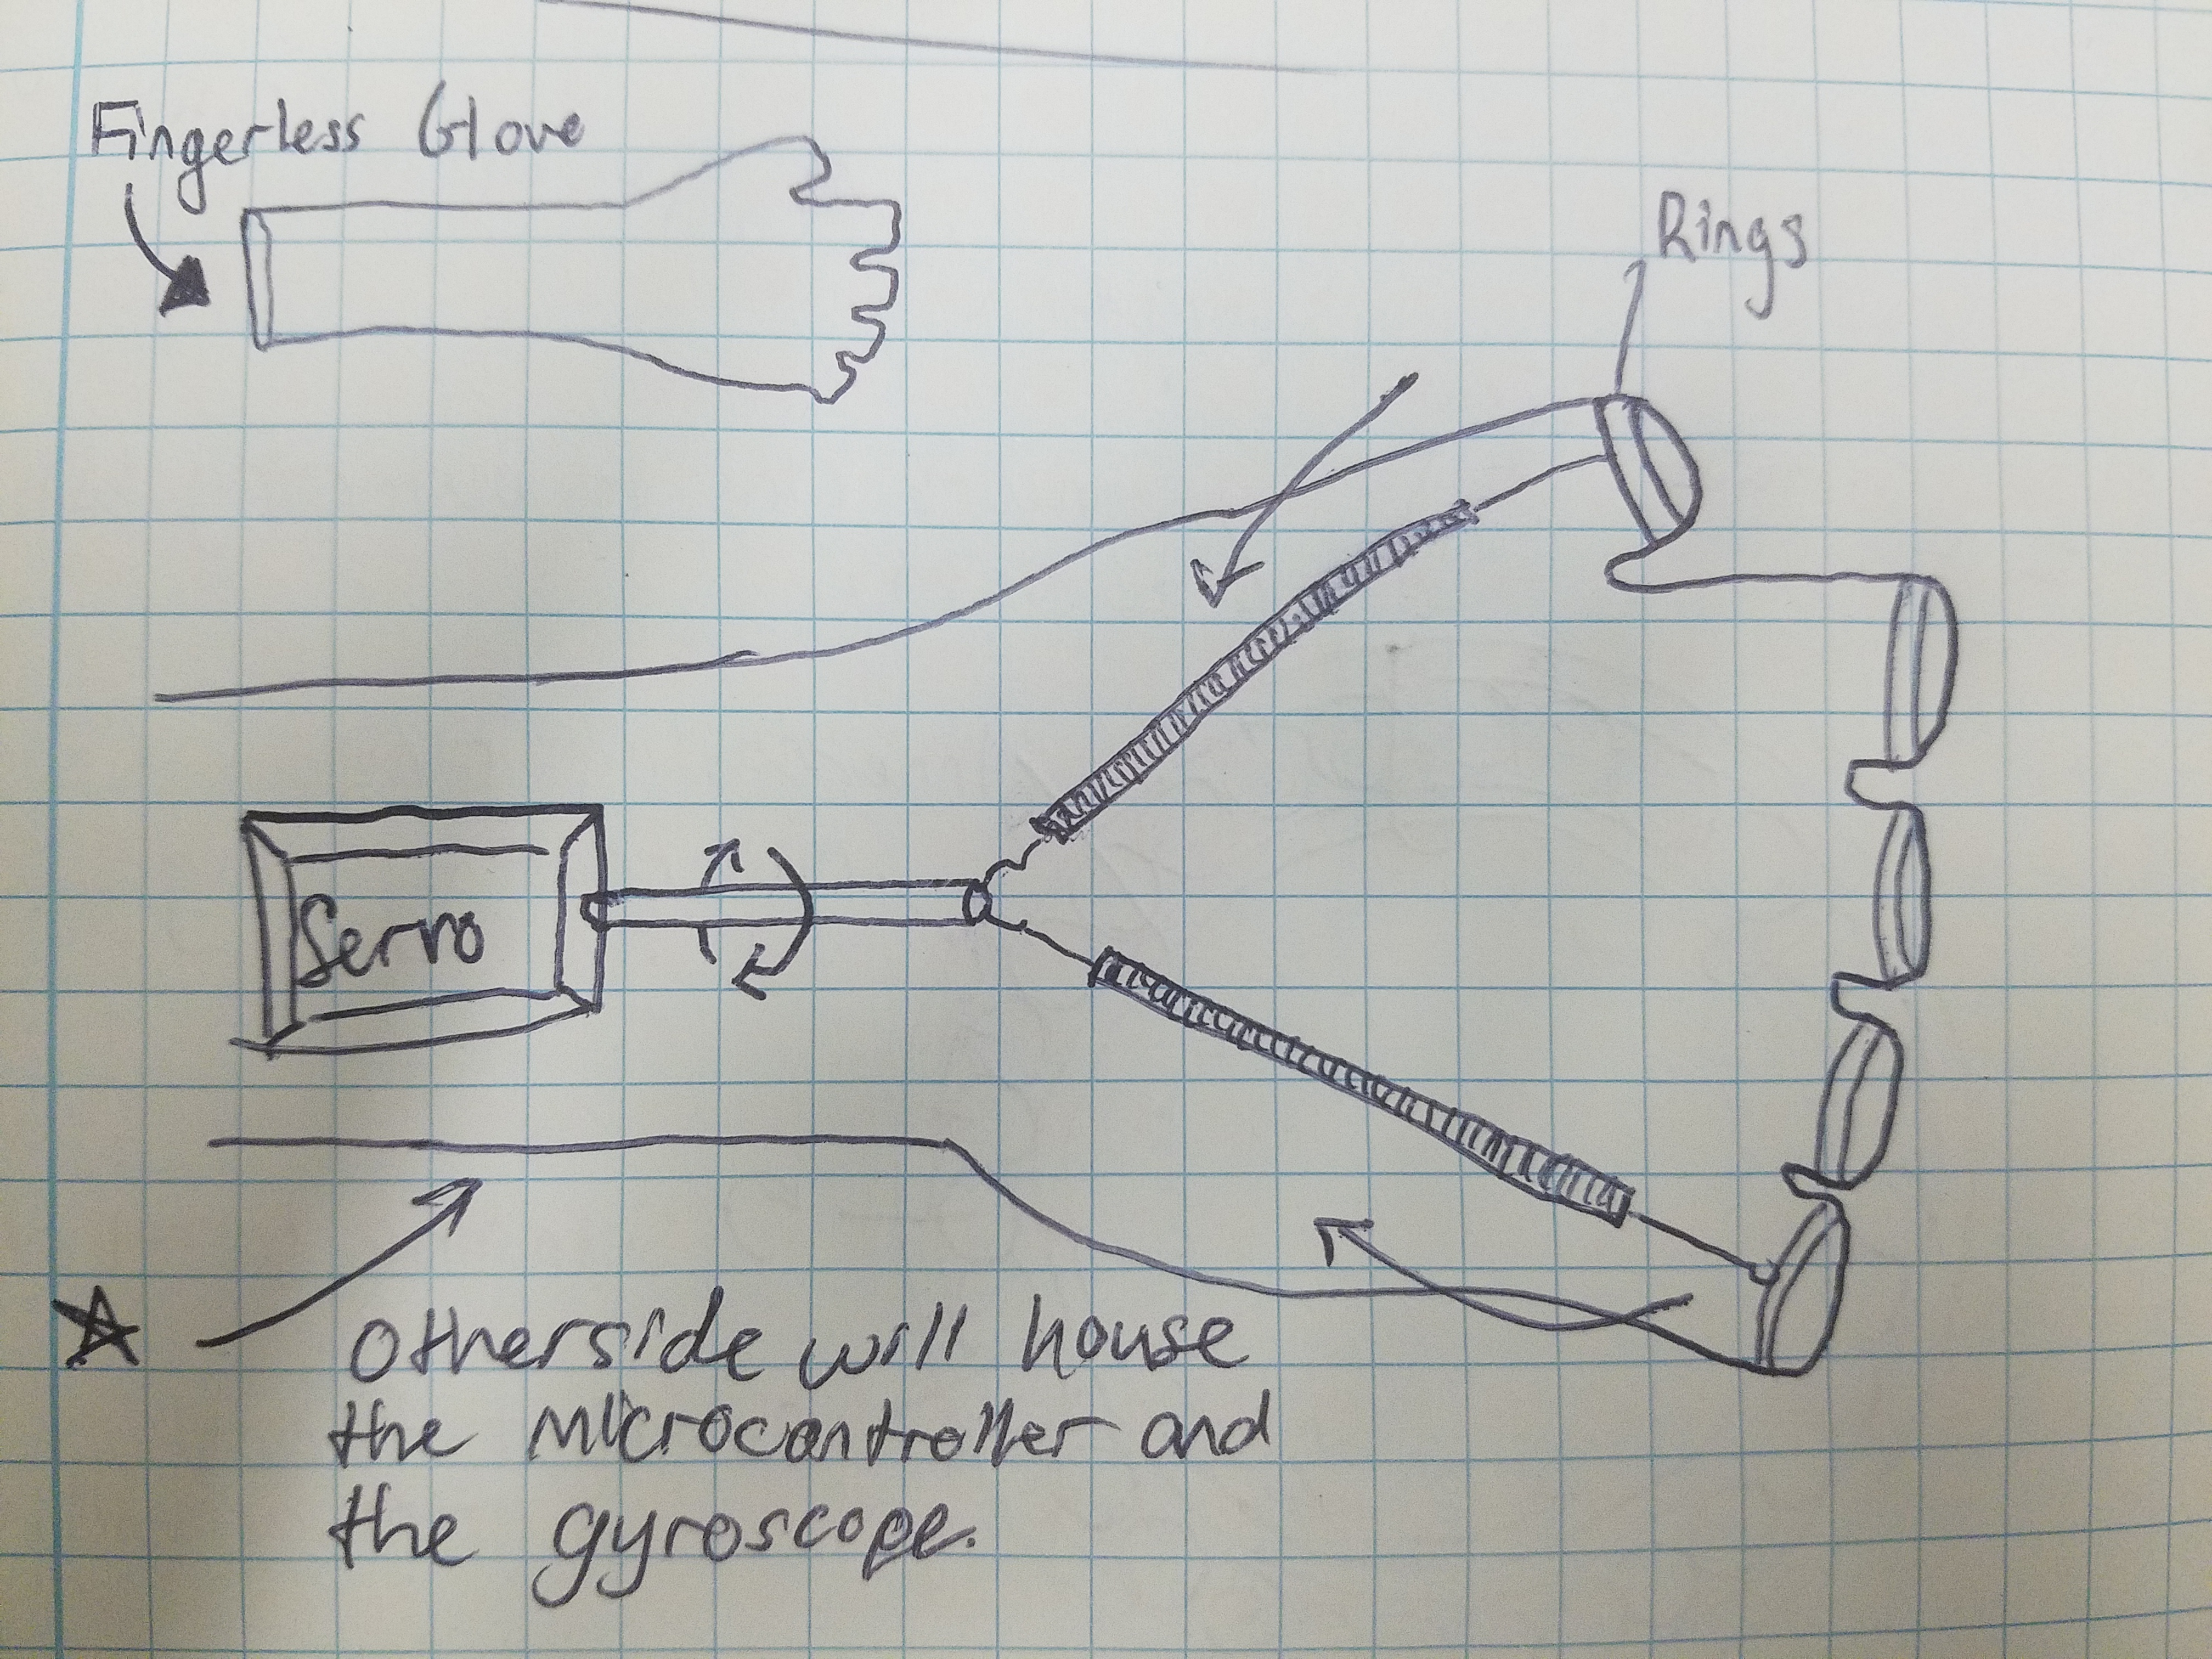 Fingerless Glove
Servo
Rings
Otherside will house
the microcontroller and
the gyroscope.